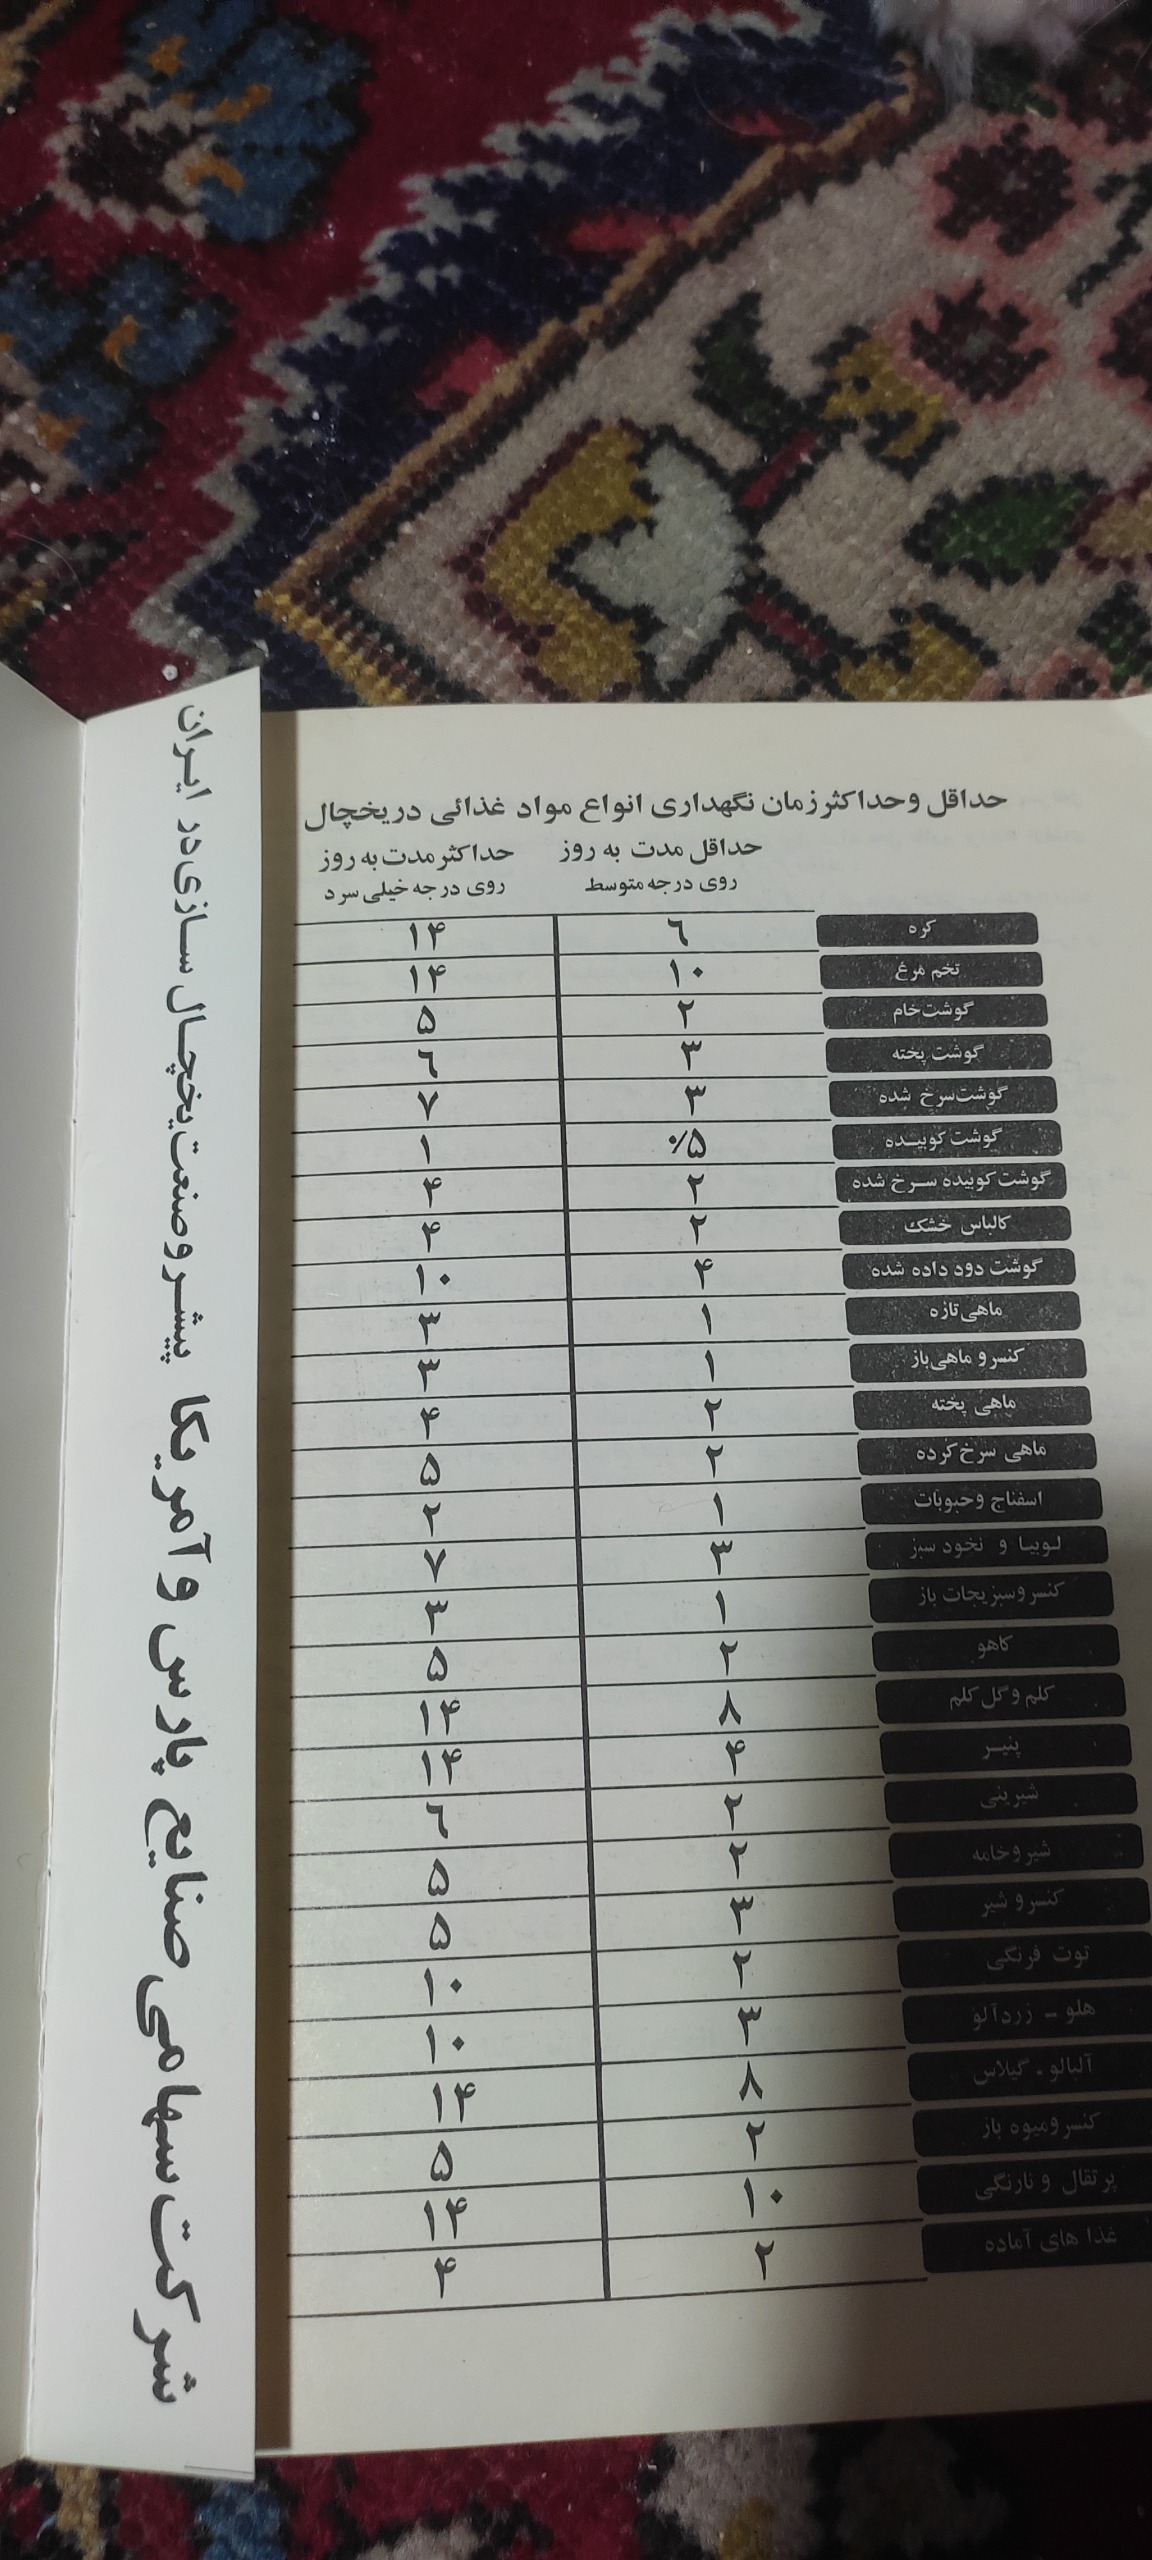 حداقل وحداکثرزمان نگهداری انواع مواد غذائی دریخچال
حداقل مدت به روز حداکثرمدت به روز
روی درجه متوسط روی درجه خیلی سرد
کره ٦ ۱۴
تخم مرغ ۱۰ ۱۴
گوشت‌خام ۲ ۵
گوشت پخته ۳ ٦
گوشت‌سرخ شده ۳ ۷
گوشت کوبیـده ۰/۵ ۱
گوشت کوبیده سـرخ شده ۲ ۴
کالباس خشک ۲ ۴
گوشت دود داده شده ۴ ۱۰
ماهی‌تازه ۱ ۳
کنسرو ماهی‌باز ۱ ۳
ماهی پخته ۲ ۴
ماهی سرخ‌کرده ۲ ۵
اسفناج وحبوبات ۱ ۲
لـوبیـا و نخود سبز ۳ ۷
کنسروسبزیجات باز ۱ ۳
کاهو ۲ ۵
کلم وگل‌کلم ۸ ۱۴
پنیـر ۴ ۱۴
شیرینی ۲ ٦
شیروخامه ۲ ۵
کنسرو شیر ۳ ۵
توت فرنگی ۲ ۱۰
هلو - زردآلو ۳ ۱۰
آلبالو - گیلاس ۸ ۱۴
کنسرومیوه باز ۲ ۵
پرتقال و نارنگی ۱۰ ۱۴
غذا های آماده ۲ ۴
شرکت‌سهامی صنایع پارس و آمریکا پیشـروصنعت‌یخچـال سـازی‌در ایـران